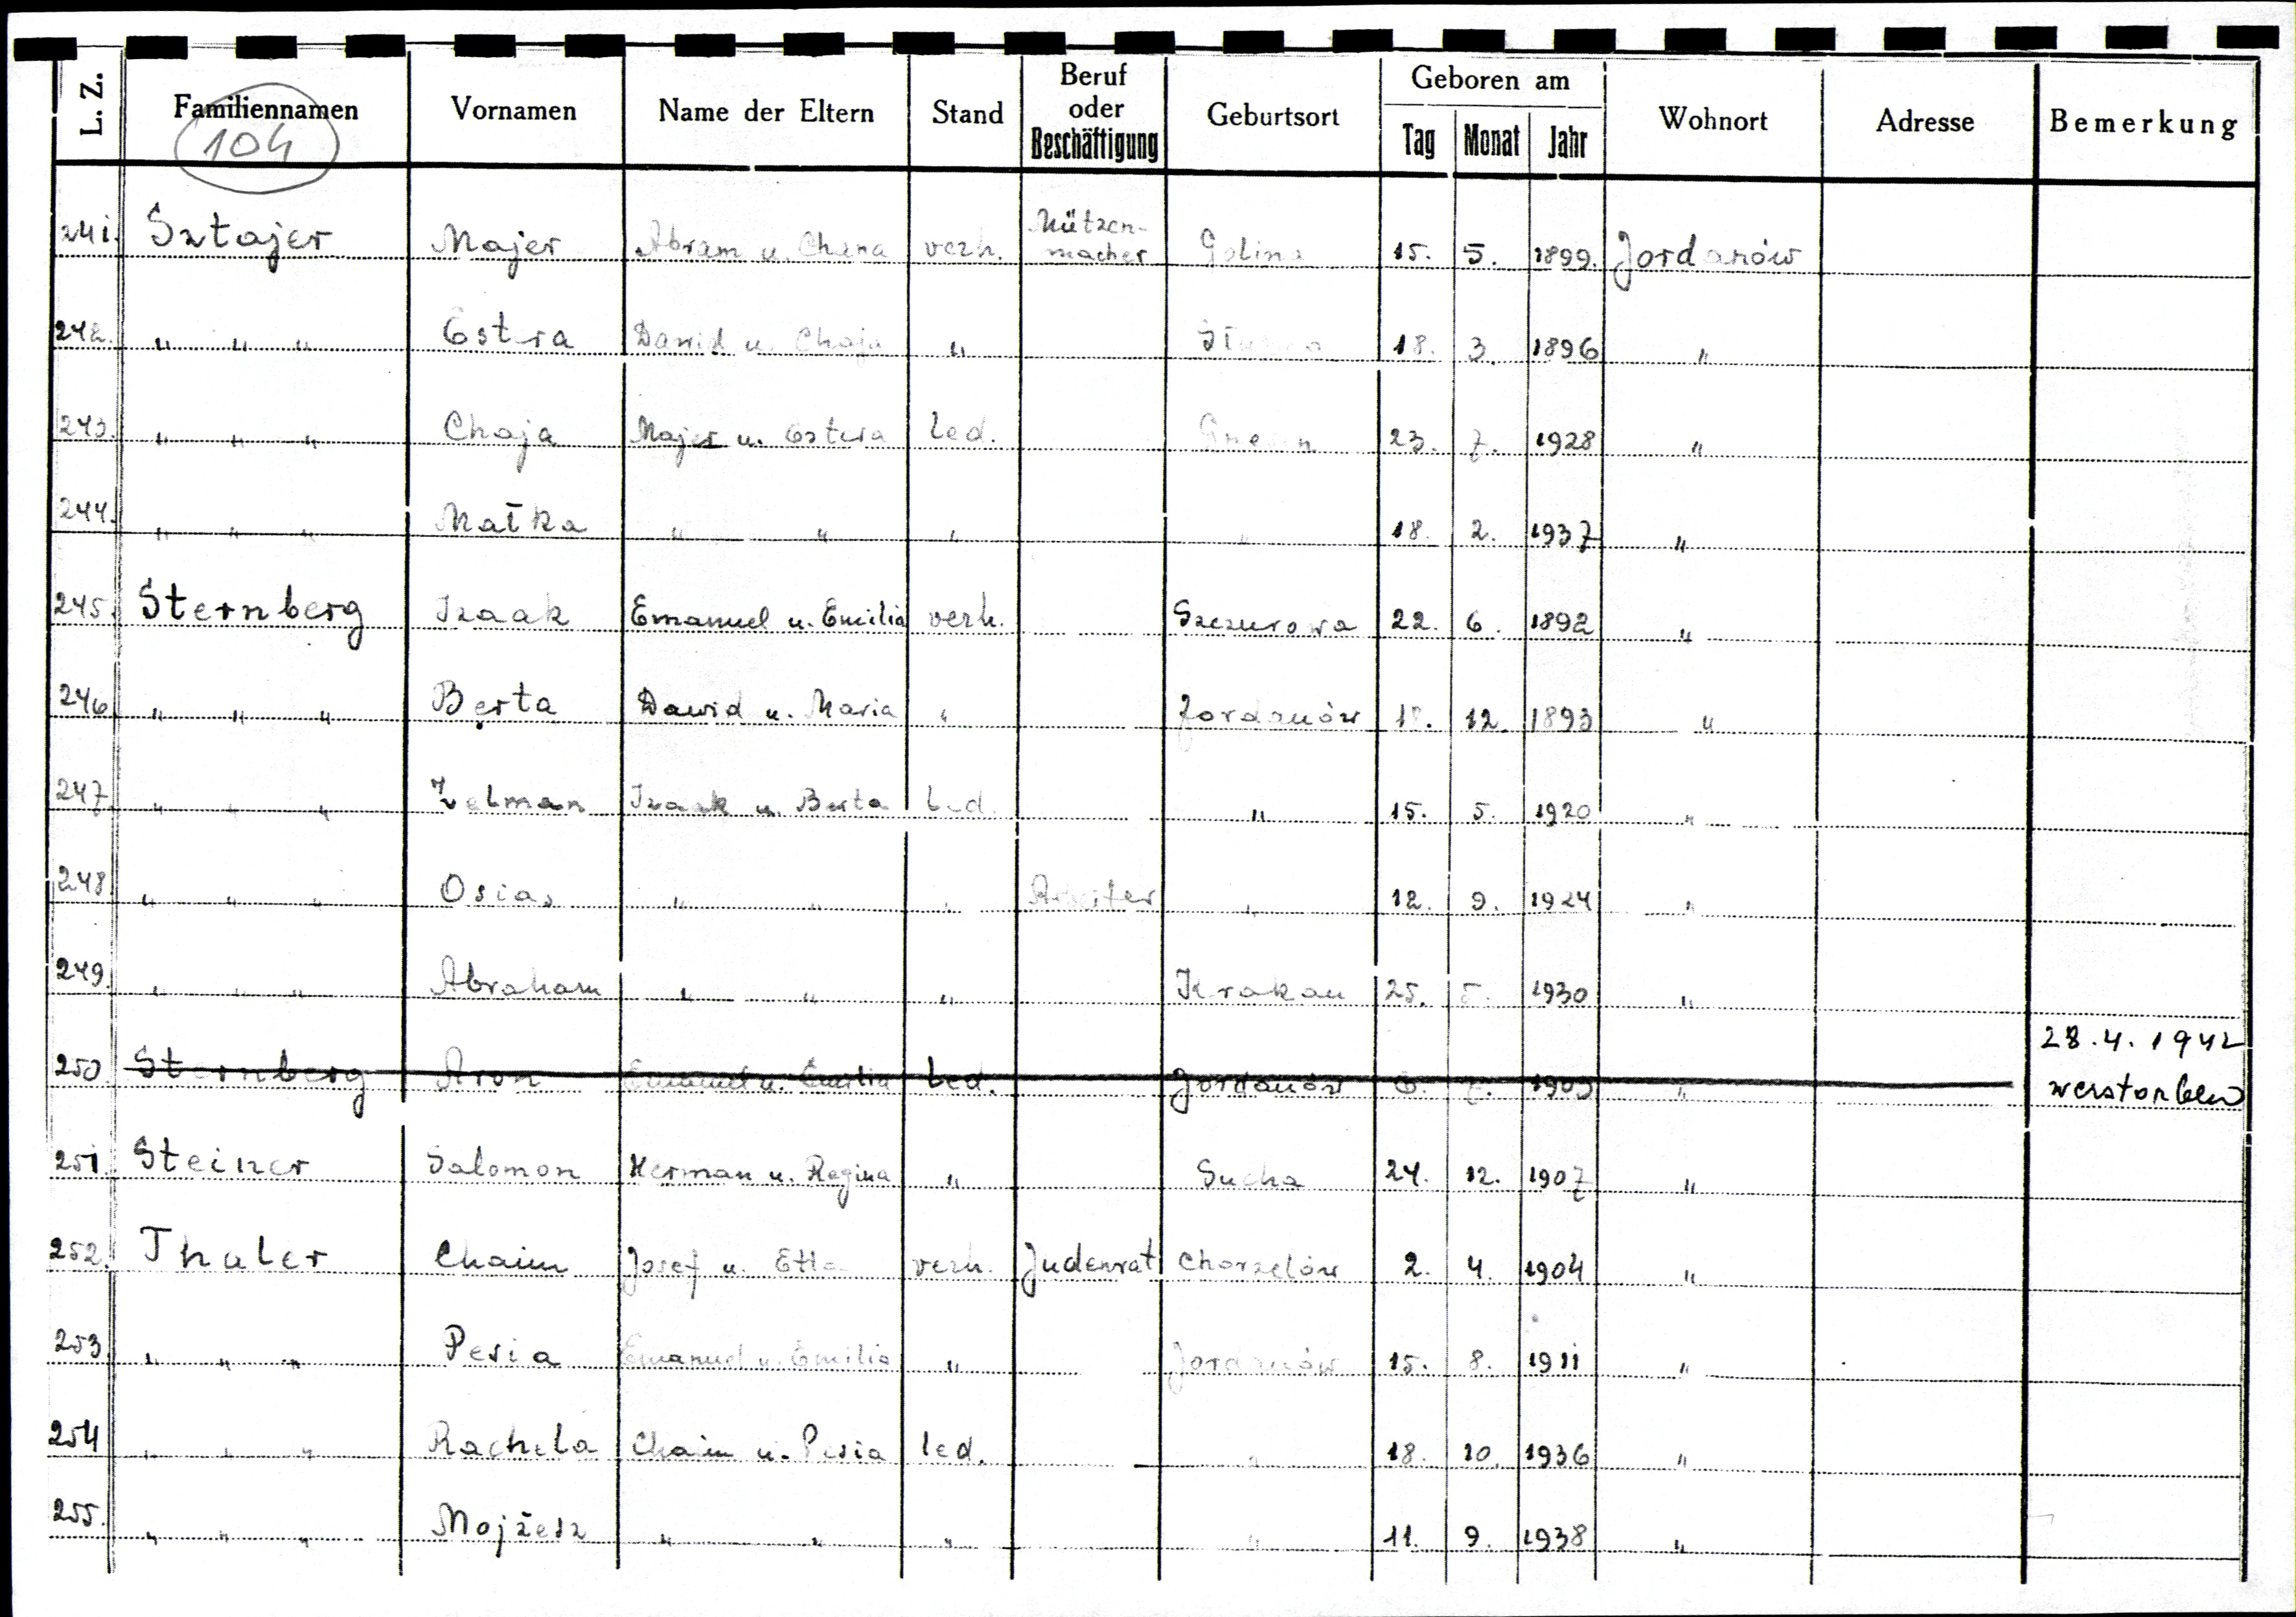 L. Z. Familiennamen Vornamen Name der Eltern Stand Beruf oder Beschäftigung Geburtsort Geboren am Tag Monat Jahr Wohnort Adresse Bemerkung
104
241. Sztajer Majer Abram u. Chana verh. Mützen-macher Golina 15. 5. 1899. Jordanów
242. " " " Estera Dawid u. Chaja " 18. 3. 1896 "
243. " " " Chaja Majer u. Estera led. 23. 7. 1928 "
244. " " " Małka " " " " 18. 2. 1937 "
245. Sternberg Izaak Emanuel u. Emilia verh. Szczurowa 22. 6. 1892 "
246. " " " Berta Dawid u. Maria " Jordanów 18. 12. 1893 "
247. " " " Zelman Izaak u. Berta led. " 15. 5. 1920 "
248. " " " Osias " " " Arbeiter " 12. 9. 1924 "
249. " " " Abraham " " " Krakau 25. 5. 1930 "
250. Sternberg Aron Emanuel u. Emilia led. Jordanów "
28.4.1942
werstorben
251. Steiner Salomon Herman u. Regina " Sucha 24. 12. 1907 "
252. Thaler Chaim Josef u. Etla verh. Judenrat Chorzelów 2. 4. 1904 "
253. " " " Pesia Emanuel u. Emilia " Jordanów 15. 8. 1911 "
254 " " " Rachela Chaim u. Pesia led. " 18. 10. 1936 "
255. " " " Mojżesz " " " " 11. 9. 1938 "